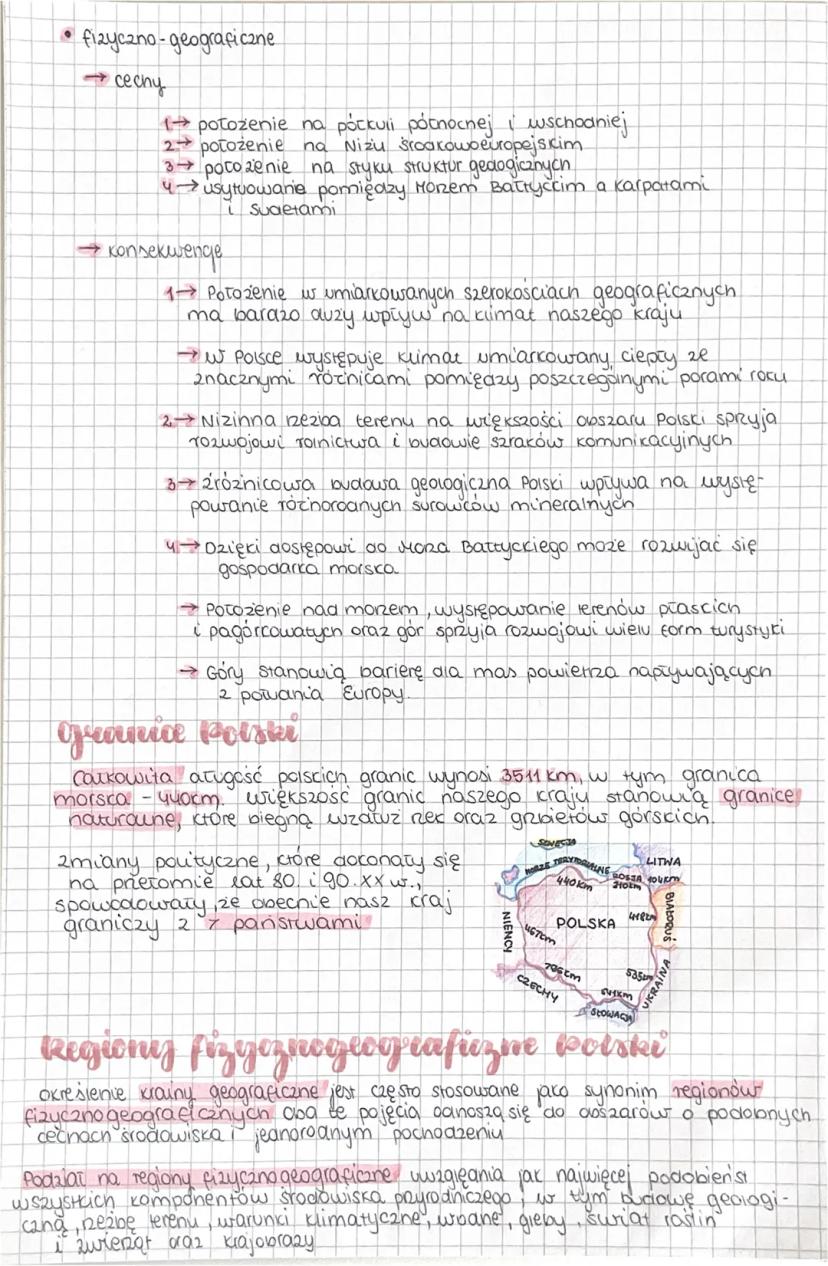 • fizyczno-geograficzne
→ cechy
1→ położenie na półkuli północnej i wschodniej
2→ położenie na Niżu Środkowoeuropejskim
3→ położenie na styku struktur geologicznych
4→ usytuowanie pomiędzy Morzem Bałtyckim a Karpatami
i Sudetami
→ konsekwencje
1→ Położenie w umiarkowanych szerokościach geograficznych
ma bardzo duży wpływ na klimat naszego kraju
→ W Polsce występuje klimat umiarkowany ciepły ze
znacznymi różnicami pomiędzy poszczególnymi porami roku
2→ Nizinna rzeźba terenu na większości obszaru Polski sprzyja
rozwojowi rolnictwa i budowie szlaków komunikacyjnych
3→ Zróżnicowa budowa geologiczna Polski wpływa na wystę-
powanie różnorodnych surowców mineralnych
4→ Dzięki dostępowi do Morza Bałtyckiego może rozwijać się
gospodarka morska
→ Położenie nad morzem, występowanie terenów płaskich
i pagórkowatych oraz gór sprzyja rozwojowi wielu form turystyki
→ Góry stanowią barierę dla mas powietrza napływających
z południa Europy.
Granice Polski
Całkowita długość polskich granic wynosi 3511 km, w tym granica
morska - 440km. Większość granic naszego kraju stanowią granice
naturalne, które biegną wzdłuż rzek oraz grzbietów górskich.
Zmiany polityczne, które dokonały się
na przełomie lat 80. i 90. XX w.,
spowodowały, że obecnie nasz kraj
graniczy z 7 państwami
SZWECJA
MORZE TERYTORIALNE
440km
ROSJA
210km
LITWA
104km
BIAŁORUŚ
418km
POLSKA
NIEMCY
467km
UKRAINA
535km
CZECHY
796km
SŁOWACJA
541km
Regiony fizycznogeograficzne Polski
Określenie krainy geograficzne jest często stosowane jako synonim regionów
fizycznogeograficznych Oba te pojęcia odnoszą się do obszarów o podobnych
cechach środowiska i jednorodnym pochodzeniu
Podział na regiony fizycznogeograficzne uwzględnia jak najwięcej podobieńst
wszystkich komponentów środowiska przyrodniczego, w tym budowę geologi-
czną, rzeźbę terenu, warunki klimatyczne, wodne, gleby, świat roślin
i zwierząt oraz krajobrazy